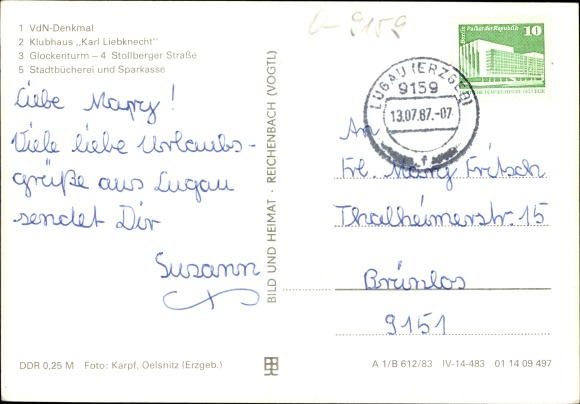 1 VdN-Denkmal
2 Klubhaus „Karl Liebknecht"
3 Glockenturm – 4 Stollberger Straße
5 Stadtbücherei und Sparkasse
9159
Berlin, Palast der Republik 10
LUGAU (ERZGEB)
9159
13.07.87.-07
f
Liebe Mary!
Viele liebe Urlaubs-
grüße aus Lugau
sendet Dir
Susann
BILD UND HEIMAT · REICHENBACH (VOGTL)
An
Frl. Mary Fritsch
Thalheimerstr. 15
Brünlos
9151
DDR 0,25 M Foto: Karpf, Oelsnitz (Erzgeb.)
A 1/B 612/83 IV-14-483 01 14 09 497